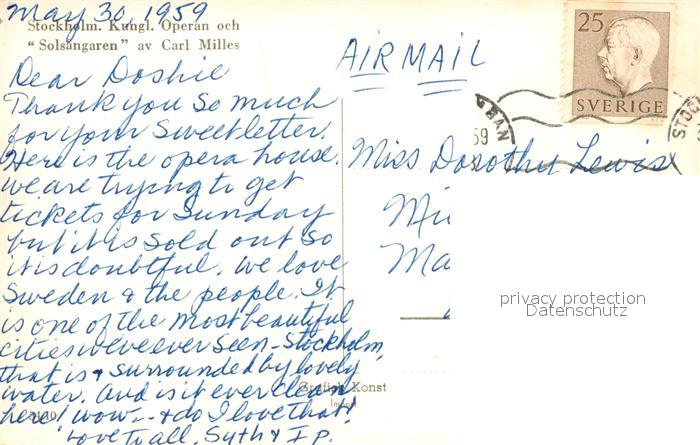 May 30, 1959
Stockholm. Kungl. Operan och
"Solsångaren" av Carl Milles
Dear Doshie
Thank you so much
for your sweet letter.
Here is the opera house.
we are trying to get
tickets for Sunday
but it is sold out so
it is doubtful. We love
Sweden & the people. It
is one of the most beautiful
cities we've ever seen - Stockholm,
that is & surrounded by lovely
water. And is it ever clean
here! wow -- & do I love that!
Love to all,
Grafisk Konst
AIR MAIL
25
SVERIGE
BAN
59
Miss Dorothy Lewis
Mi
Ma
privacy protection
Datenschutz